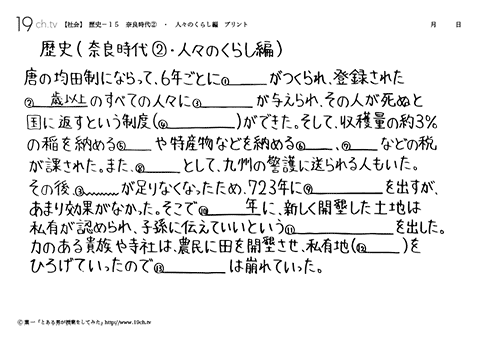 19 ch.tv 【社会】 歴史－15 奈良時代② ・ 人々のくらし編 プリント 月 日
歴史(奈良時代②・人々のくらし編)
唐の均田制にならって、6年ごとに①______がつくられ、登録された
②____歳以上のすべての人々に③______が与えられ、その人が死ぬと
国に返すという制度(④______)ができた。そして、収穫量の約3%
の稲を納める⑤____や特産物などを納める⑥____、⑦____などの税
が課された。また、⑧____として、九州の警護に送られる人もいた。
その後、③____が足りなくなったため、723年に⑨______を出すが、
あまり効果がなかった。そこで⑩____年に、新しく開墾した土地は
私有が認められ、子孫に伝えていいという⑪______を出した。
力のある貴族や寺社は、農民に田を開墾させ、私有地(⑫____)を
ひろげていったので⑬______は崩れていった。
© 葉一「とある男が授業をしてみた」 http://www.19ch.tv